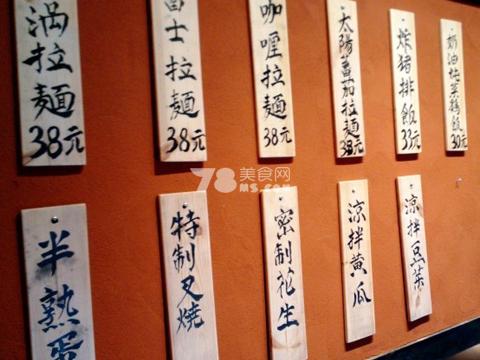 涡拉麵38元
士拉麵38元
咖喱拉麵38元
太陽蕃茄拉麵38元
炸猪排飯33元
奶油炖菜鷄飯30元
78美食网
MS.COM
半熟蛋
特制叉燒
密制花生
涼拌黄瓜
涼拌豆菜